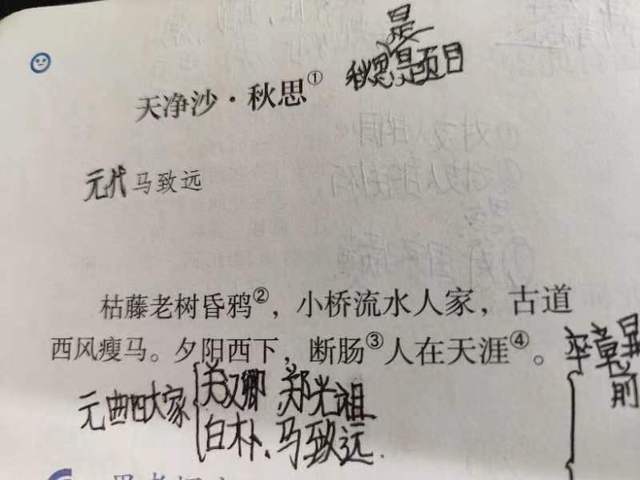 是
秋思是题目
天净沙·秋思①
元代 马致远
枯藤老树昏鸦②，小桥流水人家，古道
西风瘦马。夕阳西下，断肠③人在天涯④。
元曲四大家 关汉卿、郑光祖
白朴、马致远.
前